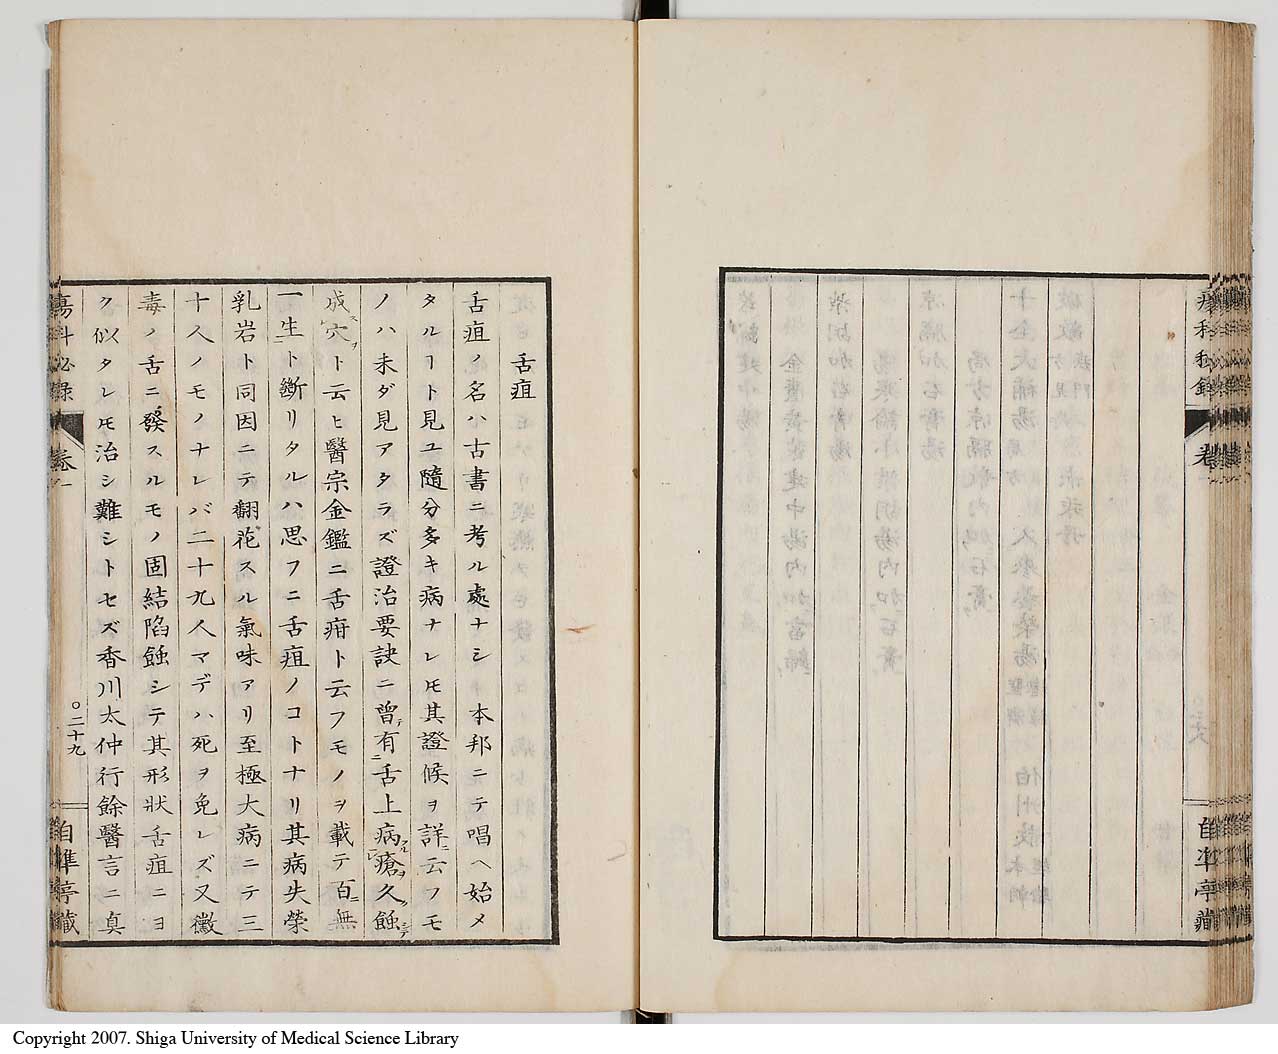 瘍科秘録
卷一
自準亭藏
舌疽
舌疽ノ名ハ古書ニ考ル處ナシ本邦ニテ唱ヘ始メ
タルヿト見ユ隨分多キ病ナレ𪜈其證候ヲ詳ニ云フモ
ノハ未ダ見アタラズ證治要訣ニ曾テ有ニ舌上病ルヿレ瘡ヲ久蝕シテ
成スレ穴ヲト云ヒ醫宗金鑑ニ舌疳ト云フモノヲ載テ百ニ無
一生ニト斷リタルハ思フニ舌疽ノコトナリ其病失榮
乳岩ト同因ニテ翻花スル氣味アリ至極大病ニテ三
十人ノモノナレバ二十九人マデハ死ヲ免レズ又黴
毒ノ舌ニ發スルモノ固結陷蝕シテ其形狀舌疽ニヨ
ク似タレ𪜈治シ難シトセズ香川太仲行餘醫言ニ真
瘍科秘録
卷一
○二十九
自準亭藏
Copyright 2007. Shiga University of Medical Science Library